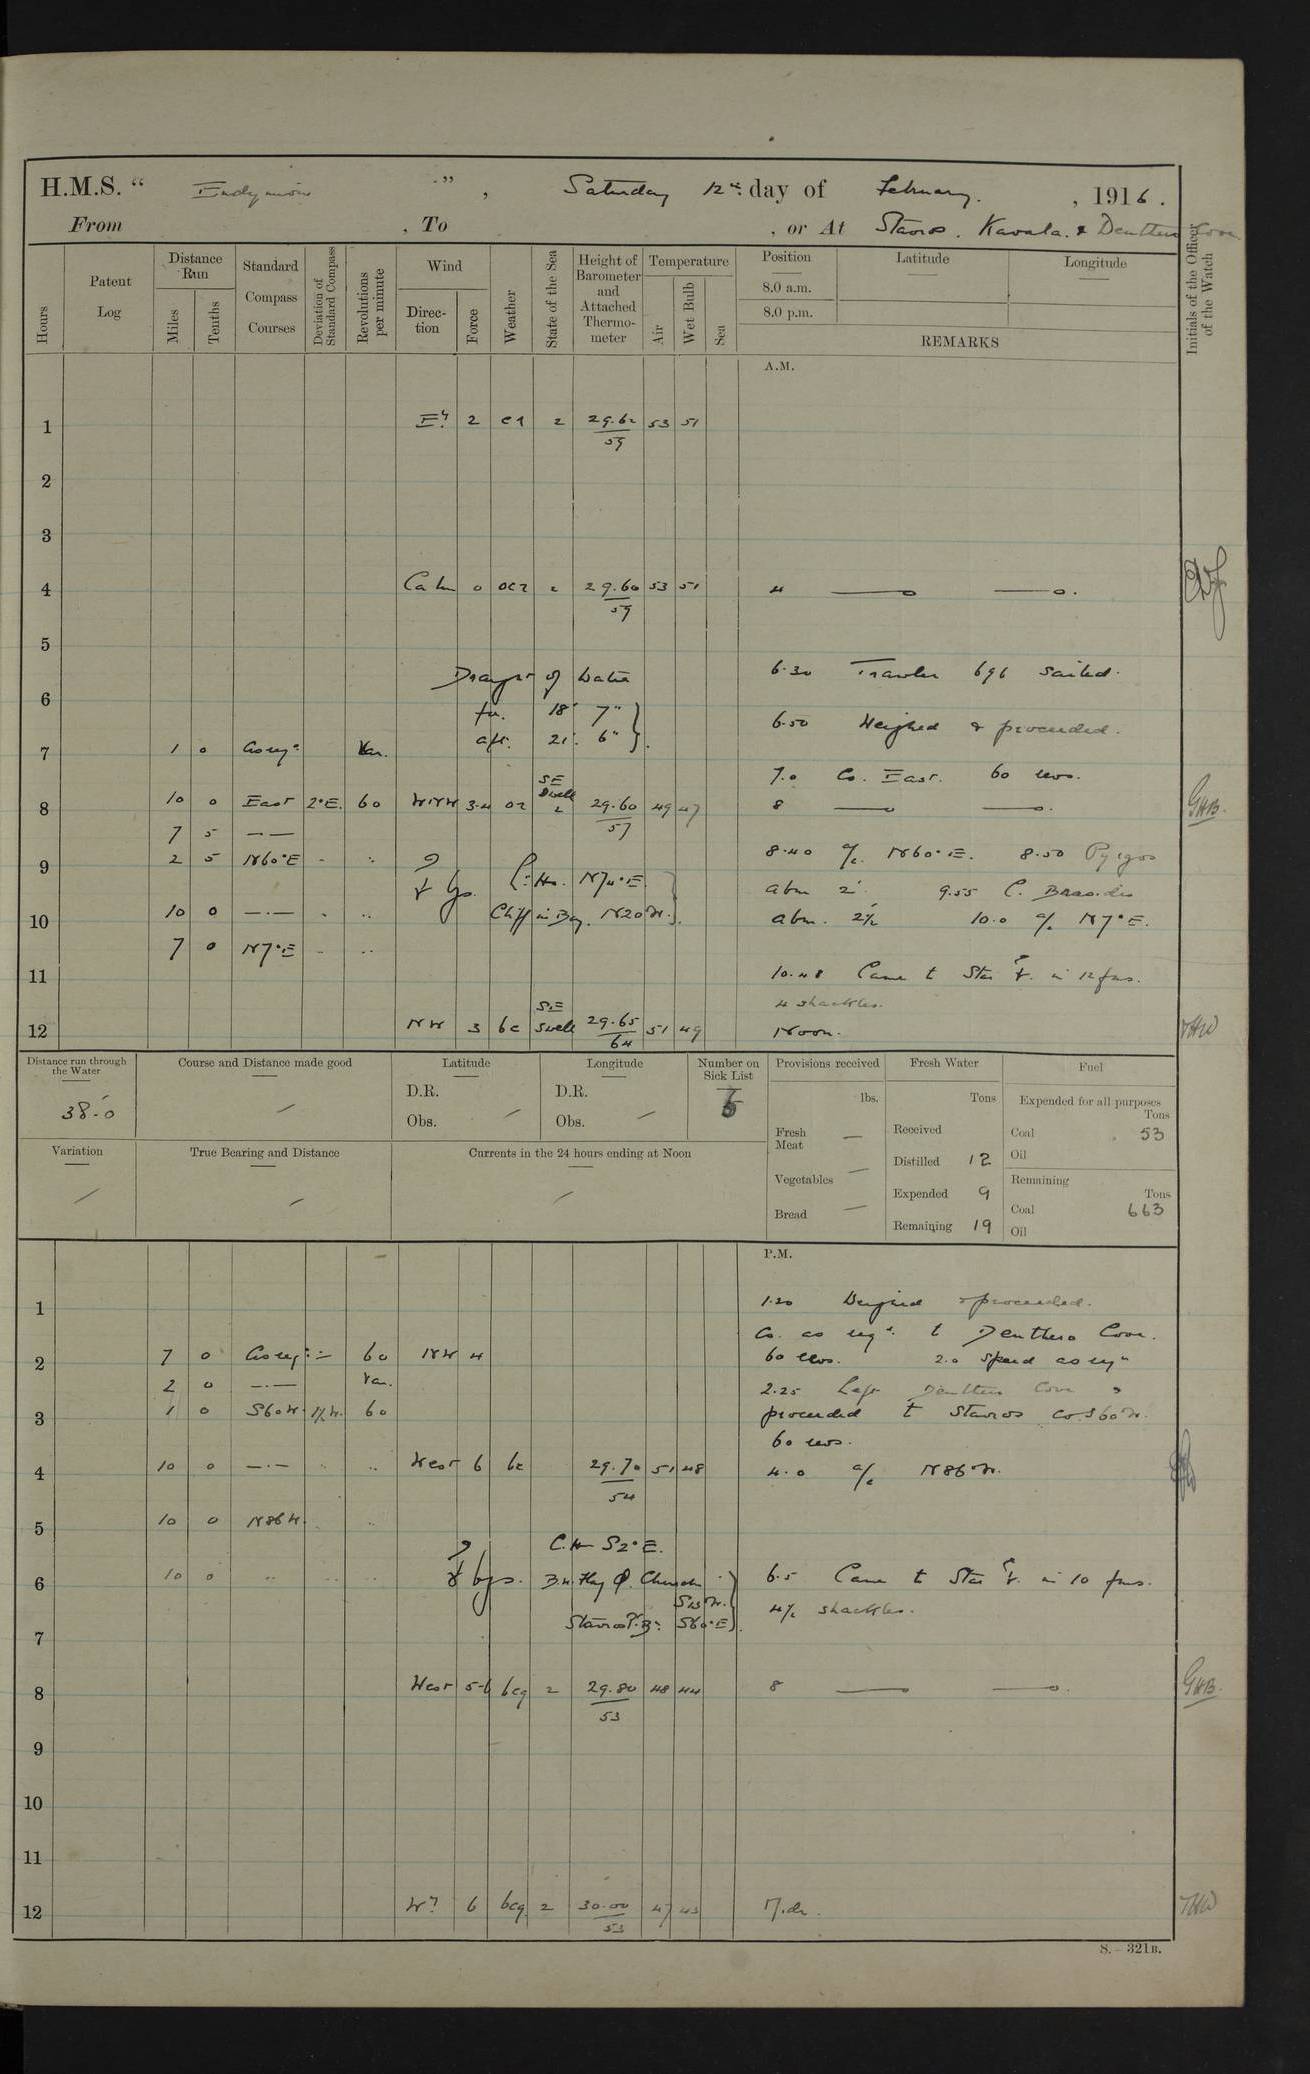 H.M.S. “ Endymion ” , Saturday 12th day of February. , 1916.
From , To , or At Stavros. Kavala. & Deuthero Cove
Hours
Patent Log
Distance Run
Miles
Tenths
Standard Compass Courses
Deviation of Standard Compass
Revolutions per minute
Wind
Direction
Force
Weather
State of the Sea
Height of Barometer and Attached Thermometer
Temperature
Air
Wet Bulb
Sea
Position
8.0 a.m.
8.0 p.m.
Latitude
Longitude
REMARKS
Initials of the Officer of the Watch
A.M.
1 Ely 2 2 29.62 53 51
59
2
3
4 Calm 0 2 29.60 53 51 4
59
5
6.30 Trawler 696 sailed.
6 Draught of Water
for. 18' 7"
6.50 Weighed & proceeded.
aft. 21' 6"
7 1 0 As reqd Var.
7.0 Co. East. 60 revs.
8 10 0 East 2°E. 60 WNW 3.4 SE Swell 2 29.60 49 47 8 GHB.
57
7 5 —
9 2 5 N60°E 8.40 a/c N60°E. 8.50 Pyrgos
bgs. Lt. Ho. N74°E. abm 2'. 9.55 C. Brasides
10 10 0 — Cliff in Bay. N20W. abm. 2½ 10.0 a/c N7°E.
7 0 N7°E
11 10.48 Came to Stbd in 12 fms.
4 shackles.
12 NW 3 bc SE Swell 29.65 51 49 Noon.
64
Distance run through the Water
38.0
Course and Distance made good
Latitude
D.R.
Obs.
Longitude
D.R.
Obs.
Number on Sick List
Provisions received
lbs.
Fresh Meat —
Vegetables —
Bread —
Fresh Water
Tons
Received
Distilled 12
Expended 9
Remaining 19
Fuel
Expended for all purposes
Tons
Coal 53
Oil
Remaining
Tons
Coal 663
Oil
Variation
True Bearing and Distance
Currents in the 24 hours ending at Noon
P.M.
1 1.20 Weighed & proceeded.
Co. as reqd. to Deuthero Cove.
2 7 0 As reqd 60 NW 4 60 revs. 2.0 speed as reqd
2 0 — Var. 2.25 Left Deuthero Cove &
3 1 0 S60W. 1½W. 60 proceeded to Stavros co. S60W.
60 revs.
4 10 0 — West 6 bc 29.70 51 48 4.0 a/c N86W.
54
5 10 0 N86W.
C.H. S2°E.
6 10 0 bgs. Church 6.5 Came to Stbd in 10 fms.
S13W.
4½ shackles.
Stavros S60°E
7
8 West 5-6 bcq 2 29.80 48 44 8 GHB.
53
9
10
11
12 6 bcq 2 30.00 47 43 Midt.
53
S.—321B.